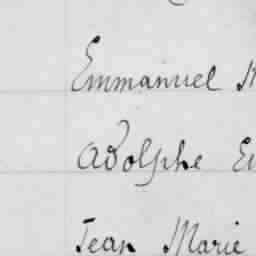 Emmanuel
Adolphe
Jean Marie